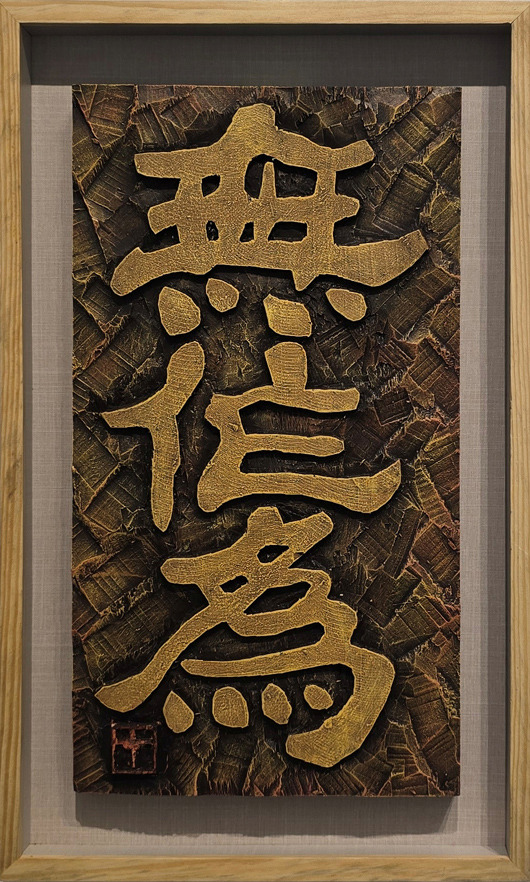 無作為